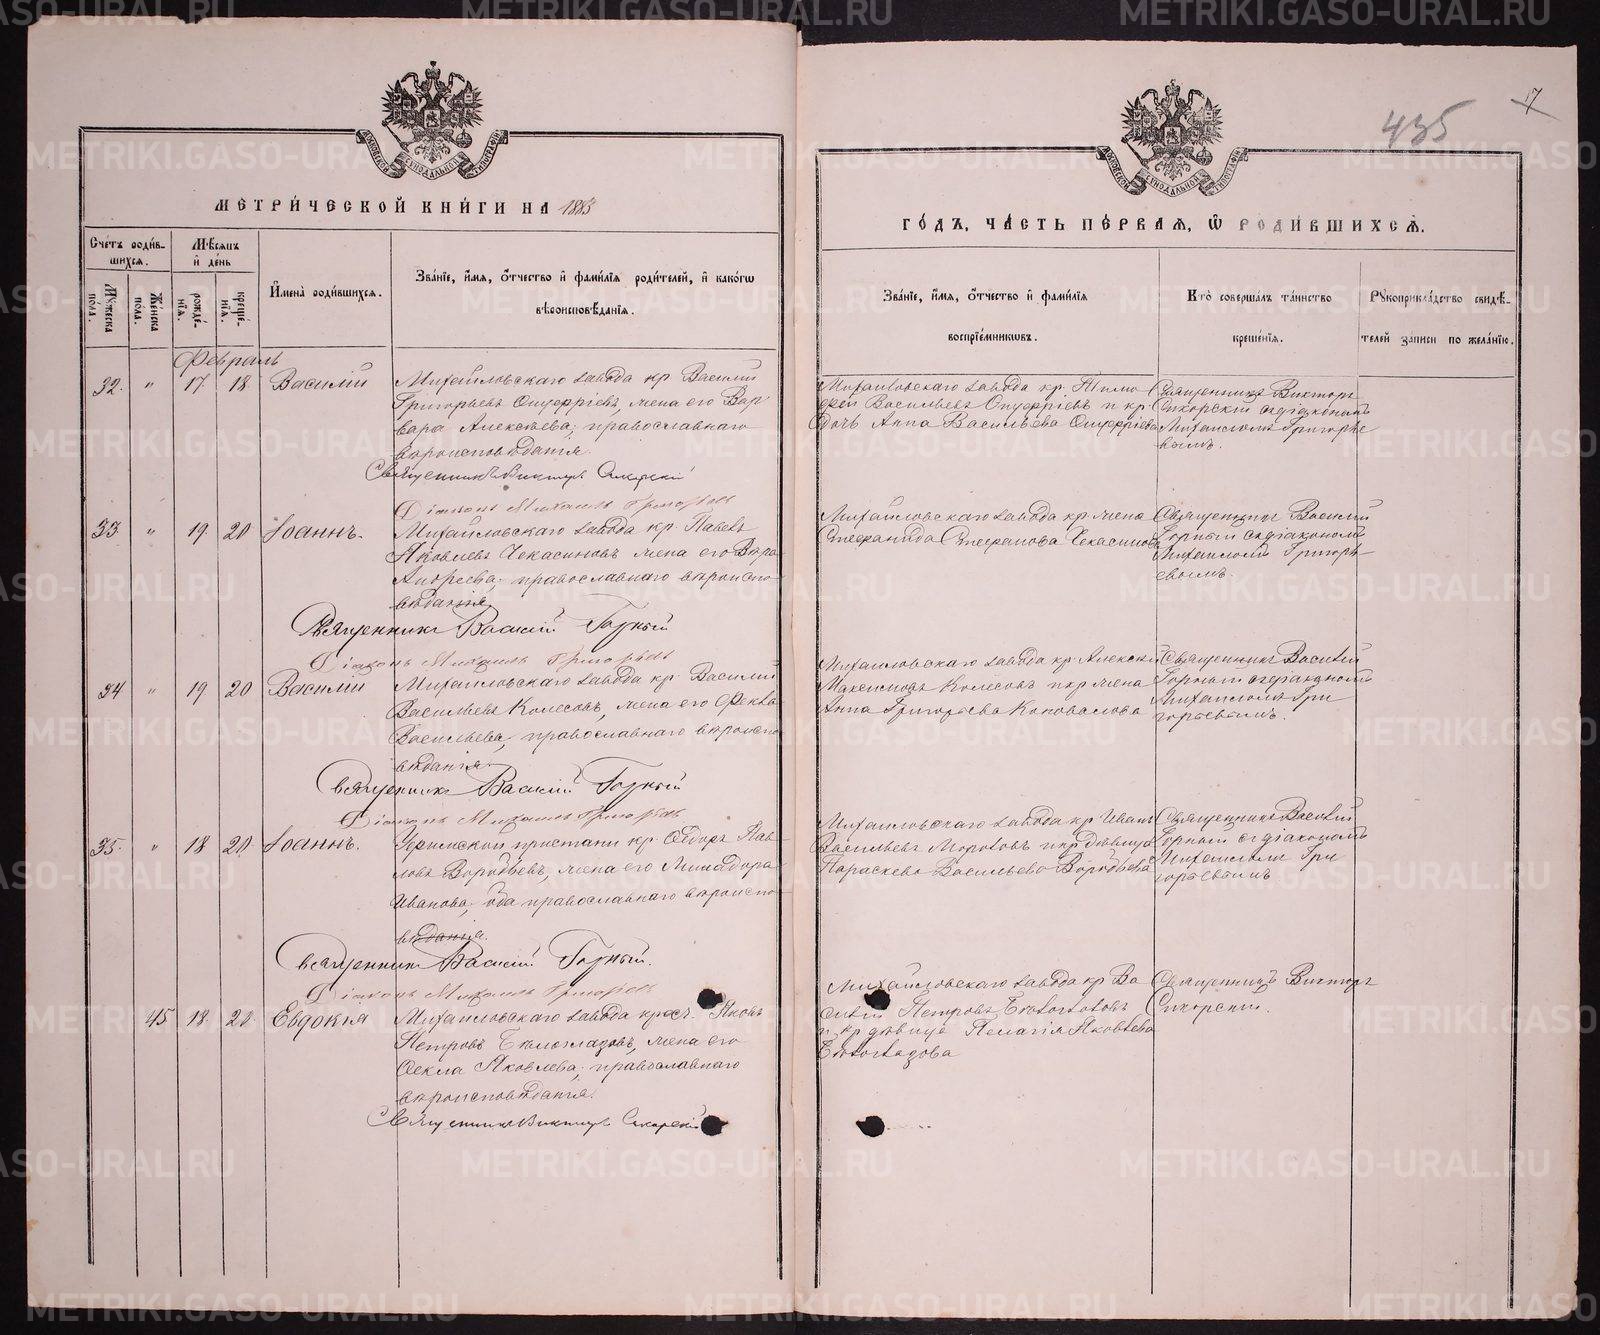 МЕТРИЧЕСКОЙ КНИГИ НА 1883
Счетъ родив-
шихся.
Мѣсяцъ
и день
Имена родившихся.
Званіе, имя, отчество и фамилія родителей, и какогω
вѣроисповѣданія.
Мужеска
пола.
Женска
пола.
рожде-
нія.
креще-
нія.
Февраль
32. " 17 18 Василій
Михайловскаго завода кр. Василій
Григорьевъ Онуфріевъ, жена его Вар-
вара Алексѣева, православнаго
вѣроисповѣданія.
Священникъ Викторъ Сикорскій
Діаконъ Михаилъ Григорьевъ
33. " 19 20 Іоаннъ.
Михайловскаго завода кр. Павелъ
Яковлевъ Чекасиновъ, жена его Вѣра
Андреева, православнаго вѣроиспо-
вѣданія.
Священникъ Василій Горный
Діаконъ Михаилъ Григорьевъ
34 " 19 20 Василій
Михайловскаго завода кр. Василій
Васильевъ Колесовъ, жена его Фекла
Васильева, православнаго вѣроиспо-
вѣданія.
Священникъ Василій Горный
Діаконъ Михаилъ Григорьевъ
35. " 18 20. Іоаннъ.
пристани кр. Ѳедоръ Пав-
ловъ Воробьевъ, жена его
Иванова, оба православнаго вѣроиспо-
вѣданія.
Священникъ Василій Горный.
Діаконъ Михаилъ Григорьевъ
45 18. 20. Евдокія
Михайловскаго завода крест. Яковъ
Петровъ Бѣлоглазовъ, жена его
Ѳекла Яковлева, православнаго
вѣроисповѣданія.
Священникъ Викторъ Сикорскій
435
17
ГОДЪ, ЧАСТЬ ПЕРВАЯ, Ѡ РОДИВШИХСЯ.
Званіе, имя, отчество и фамилія
воспріемниковъ.
Кто совершалъ таинство
крещенія.
Рукоприкладство свидѣ-
телей записи по желанію.
Михайловскаго завода кр. Тимо-
фей Васильевъ Онуфріевъ и кр.
дочь Анна Васильева Онуфріева
Священникъ Викторъ
Сикорскій съ діакономъ
Михаиломъ Григорье
вымъ.
Михайловскаго завода кр. жена
Стефанида Стефанова Чекасинова
Священникъ Василій
Горный съ діакономъ
Михаиломъ Григорь-
евымъ.
Михайловскаго завода кр. Алексѣй
Максимовъ Колесовъ и кр. жена
Анна Григорьева Коновалова
Священникъ Василій
Горный съ діакономъ
Михаиломъ Гри
горьевымъ.
Михайловскаго завода кр. Иванъ
Васильевъ Морозовъ и кр. дѣвица
Параскева Васильева Воробьева
Священникъ Василій
Горный съ діакономъ
Михаиломъ Гри
горьевымъ
Михайловскаго завода кр. Ва
силій Петровъ Бѣлоглазовъ
и кр. дѣвица Пелагія Яковлева
Бѣлоглазова
Священникъ Викторъ
Сикорскій.
METRIKI.GASO-URAL.RU